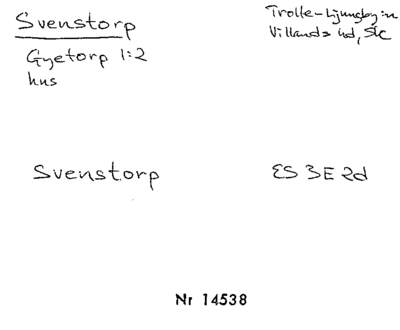 Svenstorp
Trolle-Ljungby sn
Gyetorp 1:2
Villands hd, Sk
hus
Svenstorp
ES 3E 2d
Nr 14538